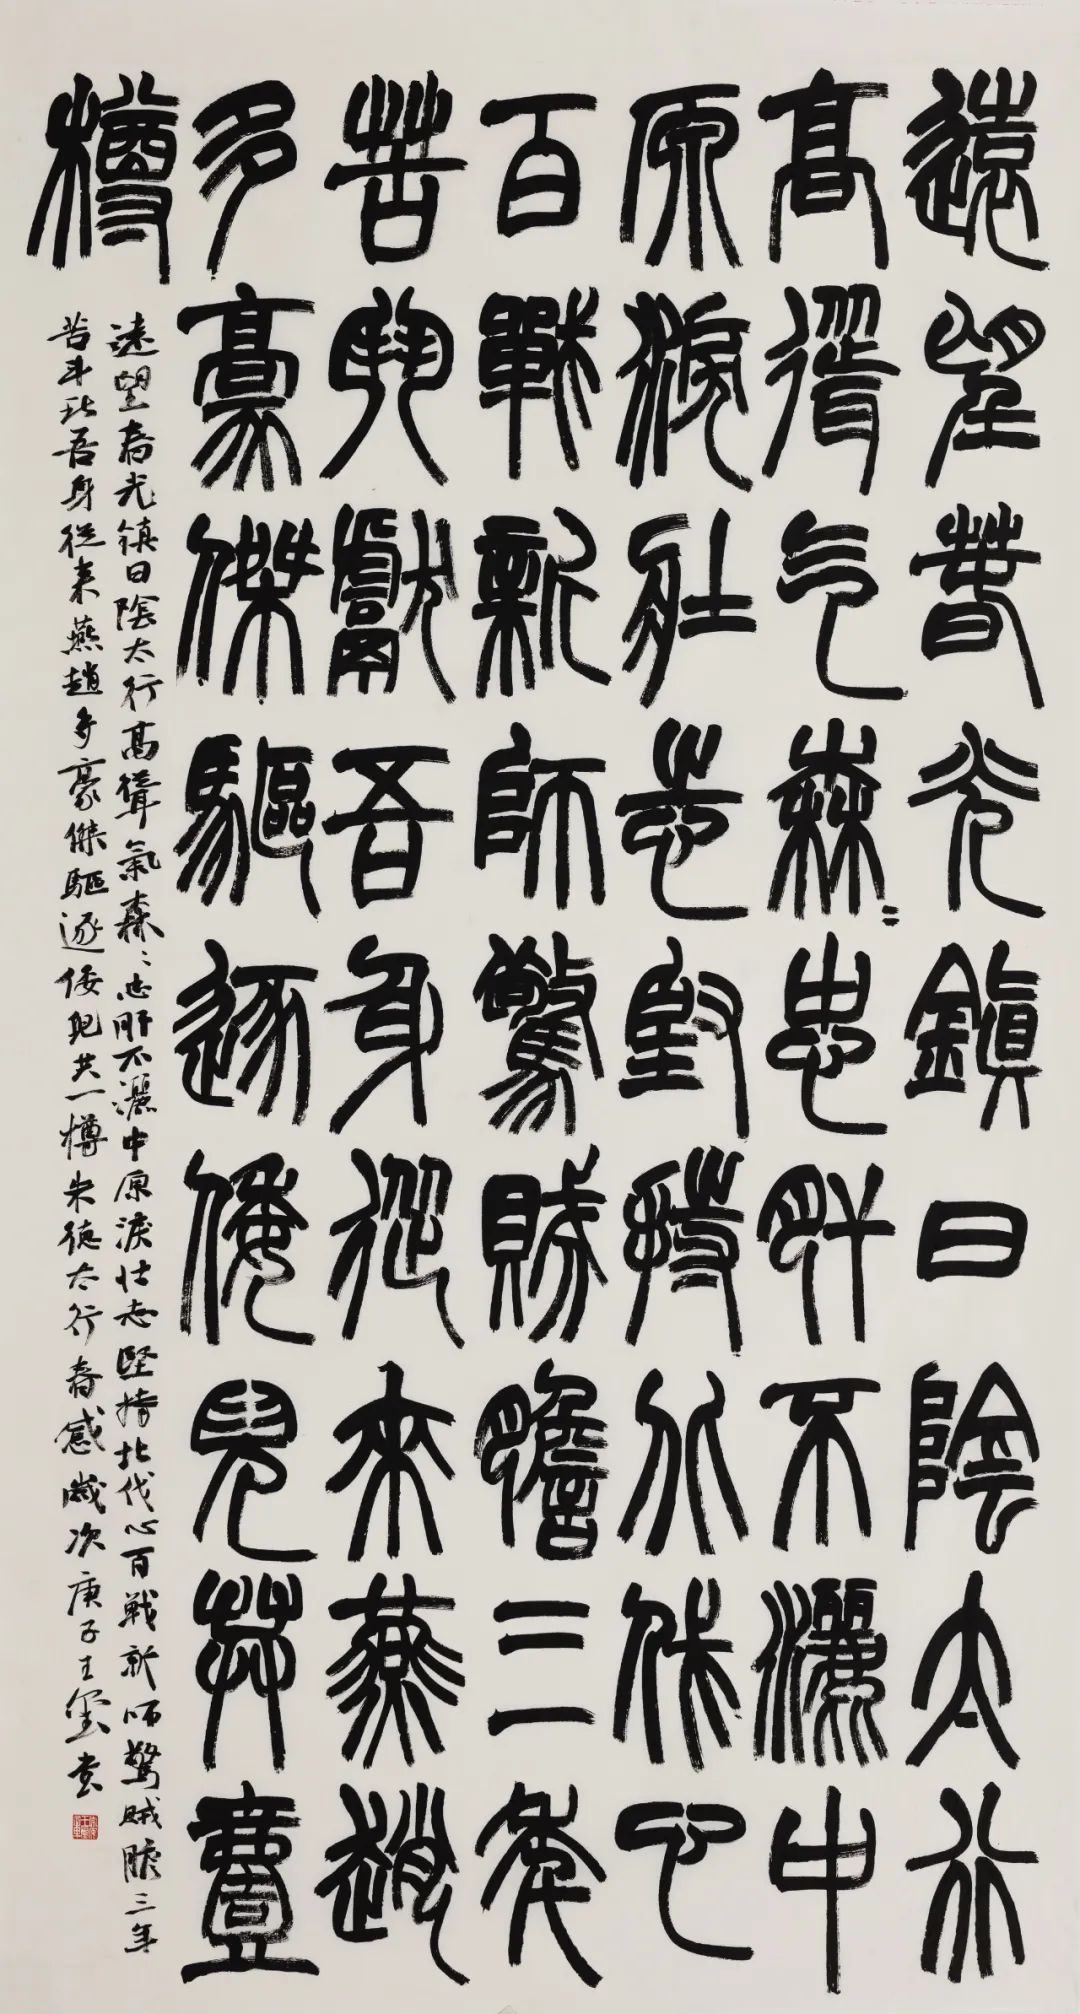 遠望春光鎮日陰太行
高聳气森〻忠肝不灑中
原淚壯志堅持北伐心
百戰新師驚賊膽三年
苦鬥獻吾身從來燕趙
多豪傑驅逐倭兒共壹
樽
遠望春光鎮日陰太行高聳氣森〻忠肝不灑中原淚壯志堅持北伐心百戰新師驚賊膽三年
苦斗吾身從來燕趙多豪傑驅逐倭兒共一樽朱德太行春感歲次庚子王书